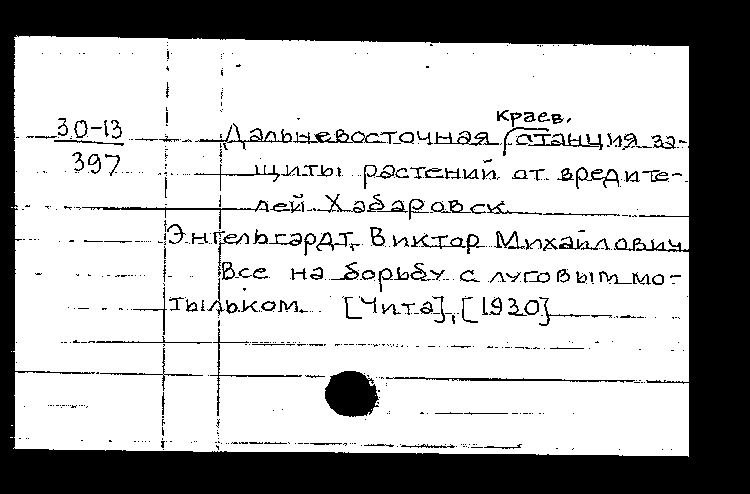 краев.
30-13 Дальневосточная станция за-
397 щиты растений от вредите-
лей Хабаровск
Энгельгардт, Виктор Михайлович
Все на борьбу с луговым мо-
тыльком. [Чита], [1930]